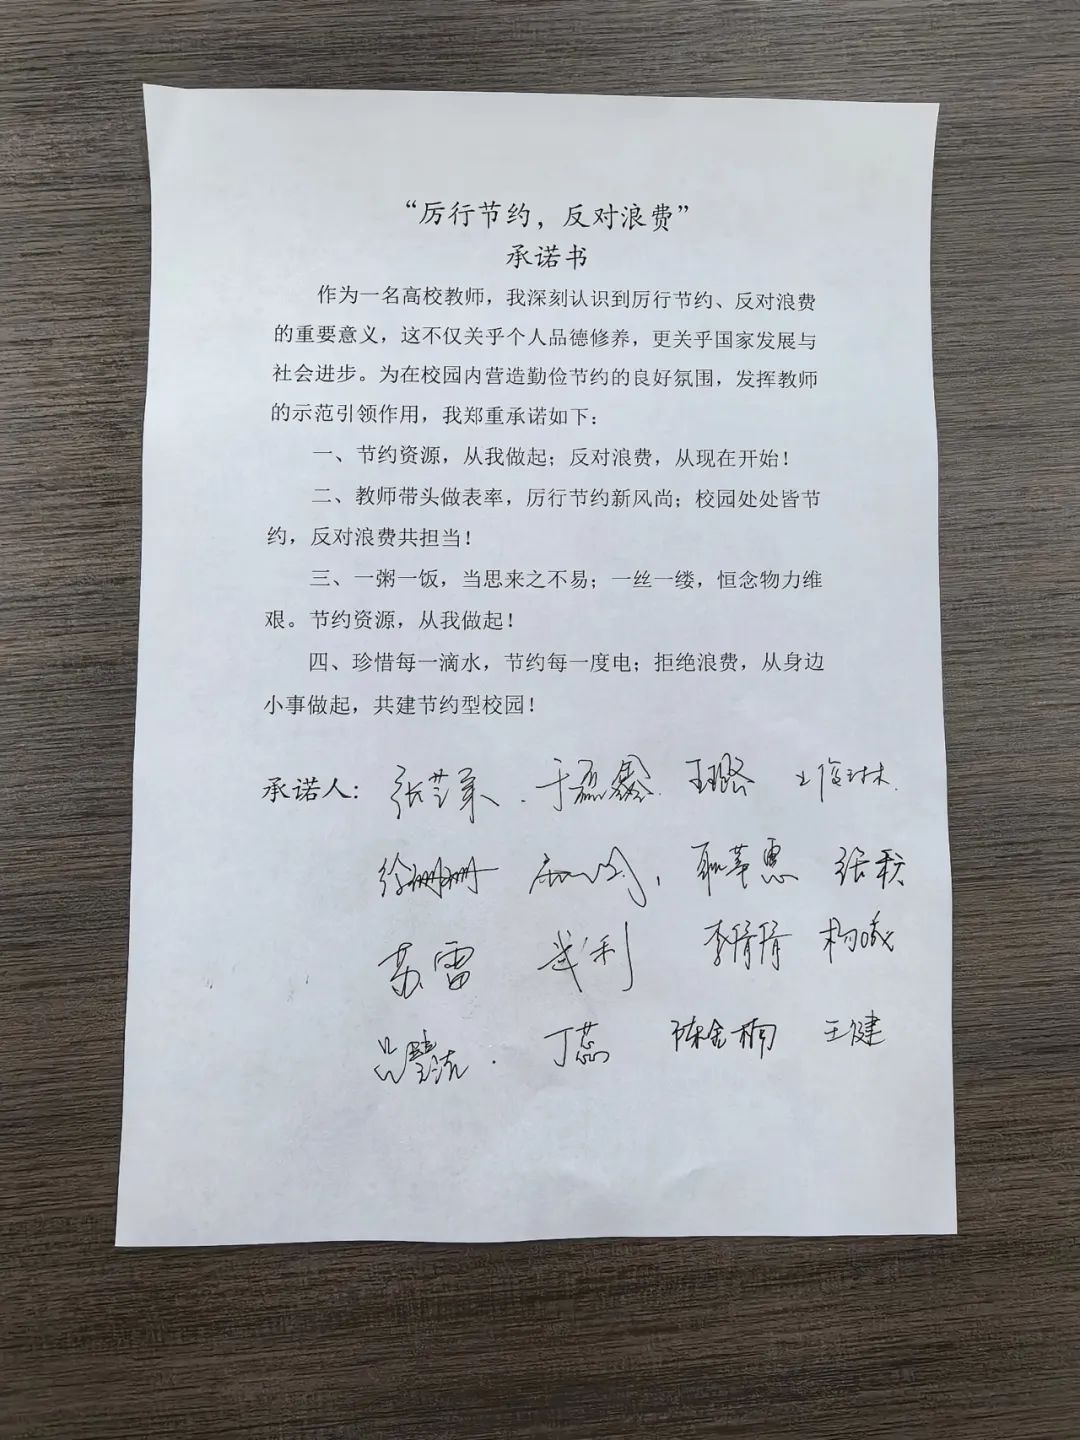 “厉行节约，反对浪费”
承诺书
作为一名高校教师，我深刻认识到厉行节约、反对浪费
的重要意义，这不仅关乎个人品德修养，更关乎国家发展与
社会进步。为在校园内营造勤俭节约的良好氛围，发挥教师
的示范引领作用，我郑重承诺如下：
一、节约资源，从我做起；反对浪费，从现在开始！
二、教师带头做表率，厉行节约新风尚；校园处处皆节
约，反对浪费共担当！
三、一粥一饭，当思来之不易；一丝一缕，恒念物力维
艰。节约资源，从我做起！
四、珍惜每一滴水，节约每一度电；拒绝浪费，从身边
小事做起，共建节约型校园！
承诺人： 王璐 王俊琳
徐珊珊 张秋
苏雷 武利 李倩倩 杨曦
丁蕊 陈金楠 王健